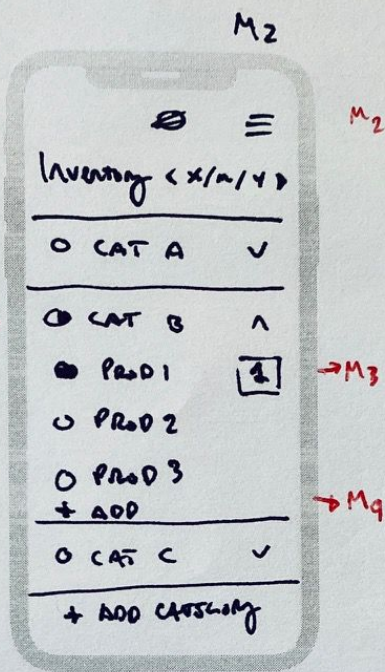 M2
M2
Inventory < x/m/y >
CAT A
CAT B
PROD 1 1 → M3
PROD 2
PROD 3
+ ADD → M9
CAT C
+ ADD CATEGORY